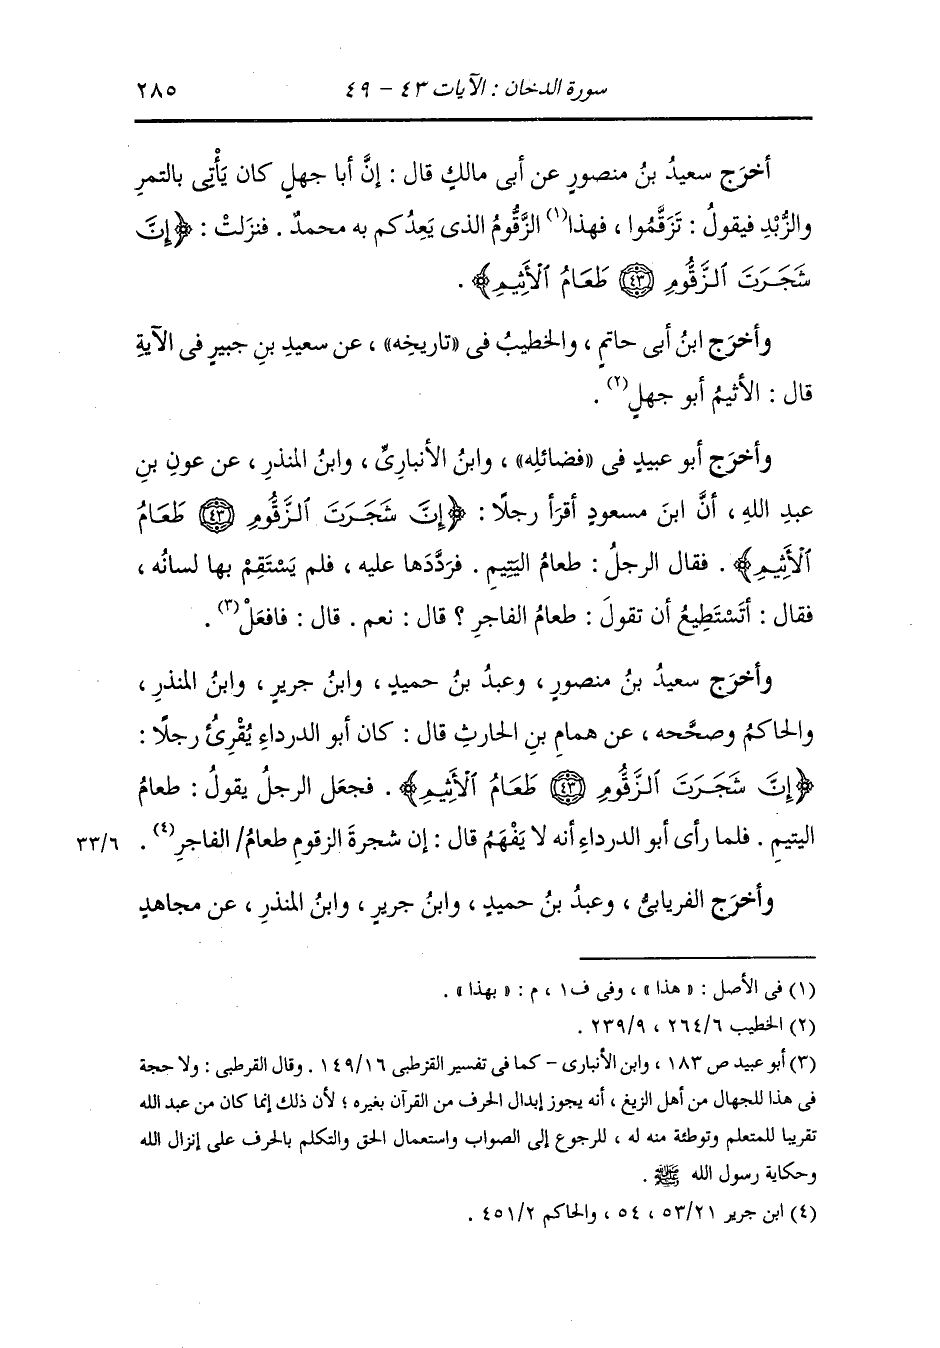 سورة الدخان : الآيات ٤٣ - ٤٩ ٢٨٥
أخرَج سعيدُ بنُ منصورٍ عن أبى مالكٍ قال : إنَّ أبا جهلٍ كان يَأْتِى بالتمرِ
والزُّبْدِ فيقولُ : تَزَقَّمُوا ، فهذا(١) الزَّقُّومُ الذى يَعِدُكم به محمدٌ . فنزلتْ : ﴿إِنَّ
شَجَرَتَ ٱلزَّقُّومِ ٤٣ طَعَامُ ٱلْأَثِيمِ﴾ .
وأخرَج ابنُ أبى حاتمٍ ، والخطيبُ فى «تاريخِه» ، عن سعيدِ بنِ جبيرٍ فى الآيةِ
قال : الأثيمُ أبو جهلٍ(٢) .
وأخرَج أبو عبيدٍ فى «فضائلِه» ، وابنُ الأنبارىِّ ، وابنُ المنذرِ ، عن عونِ بنِ
عبدِ اللهِ ، أنَّ ابنَ مسعودٍ أقرَأ رجلًا : ﴿إِنَّ شَجَرَتَ ٱلزَّقُّومِ ٤٣ طَعَامُ
ٱلْأَثِيمِ﴾ . فقال الرجلُ : طعامُ اليَتِيمِ . فرَدَّدَها عليه ، فلم يَسْتَقِمْ بها لسانُه ،
فقال : أتَسْتَطِيعُ أن تقولَ : طعامُ الفاجرِ ؟ قال : نعم . قال : فافعَلْ(٣) .
وأخرَج سعيدُ بنُ منصورٍ ، وعبدُ بنُ حميدٍ ، وابنُ جريرٍ ، وابنُ المنذرِ ،
والحاكمُ وصحَّحه ، عن همامِ بنِ الحارثِ قال : كان أبو الدرداءِ يُقْرِئُ رجلًا :
﴿إِنَّ شَجَرَتَ ٱلزَّقُّومِ ٤٣ طَعَامُ ٱلْأَثِيمِ﴾ . فجعَل الرجلُ يقولُ : طعامُ
اليتيمِ . فلما رأى أبو الدرداءِ أنه لا يَفْهَمُ قال : إن شجرةَ الزقومِ طعامُ/ الفاجرِ(٤) . ٣٣/٦
وأخرَج الفريابىُّ ، وعبدُ بنُ حميدٍ ، وابنُ جريرٍ ، وابنُ المنذرِ ، عن مجاهدٍ
(١) فى الأصل : « هذا » ، وفى ف١ ، م : « بهذا » .
(٢) الخطيب ٢٦٤/٦ ، ٢٣٩/٩ .
(٣) أبو عبيد ص ١٨٣ ، وابن الأنبارى - كما فى تفسير القرطبى ١٤٩/١٦ . وقال القرطبى : ولا حجة
فى هذا للجهال من أهل الزيغ ، أنه يجوز إبدال الحرف من القرآن بغيره ؛ لأن ذلك إنما كان من عبد الله
تقريبا للمتعلم وتوطئة منه له ، للرجوع إلى الصواب واستعمال الحق والتكلم بالحرف على إنزال الله
وحكاية رسول الله ﷺ .
(٤) ابن جرير ٥٣/٢١ ، ٥٤ ، والحاكم ٤٥١/٢ .